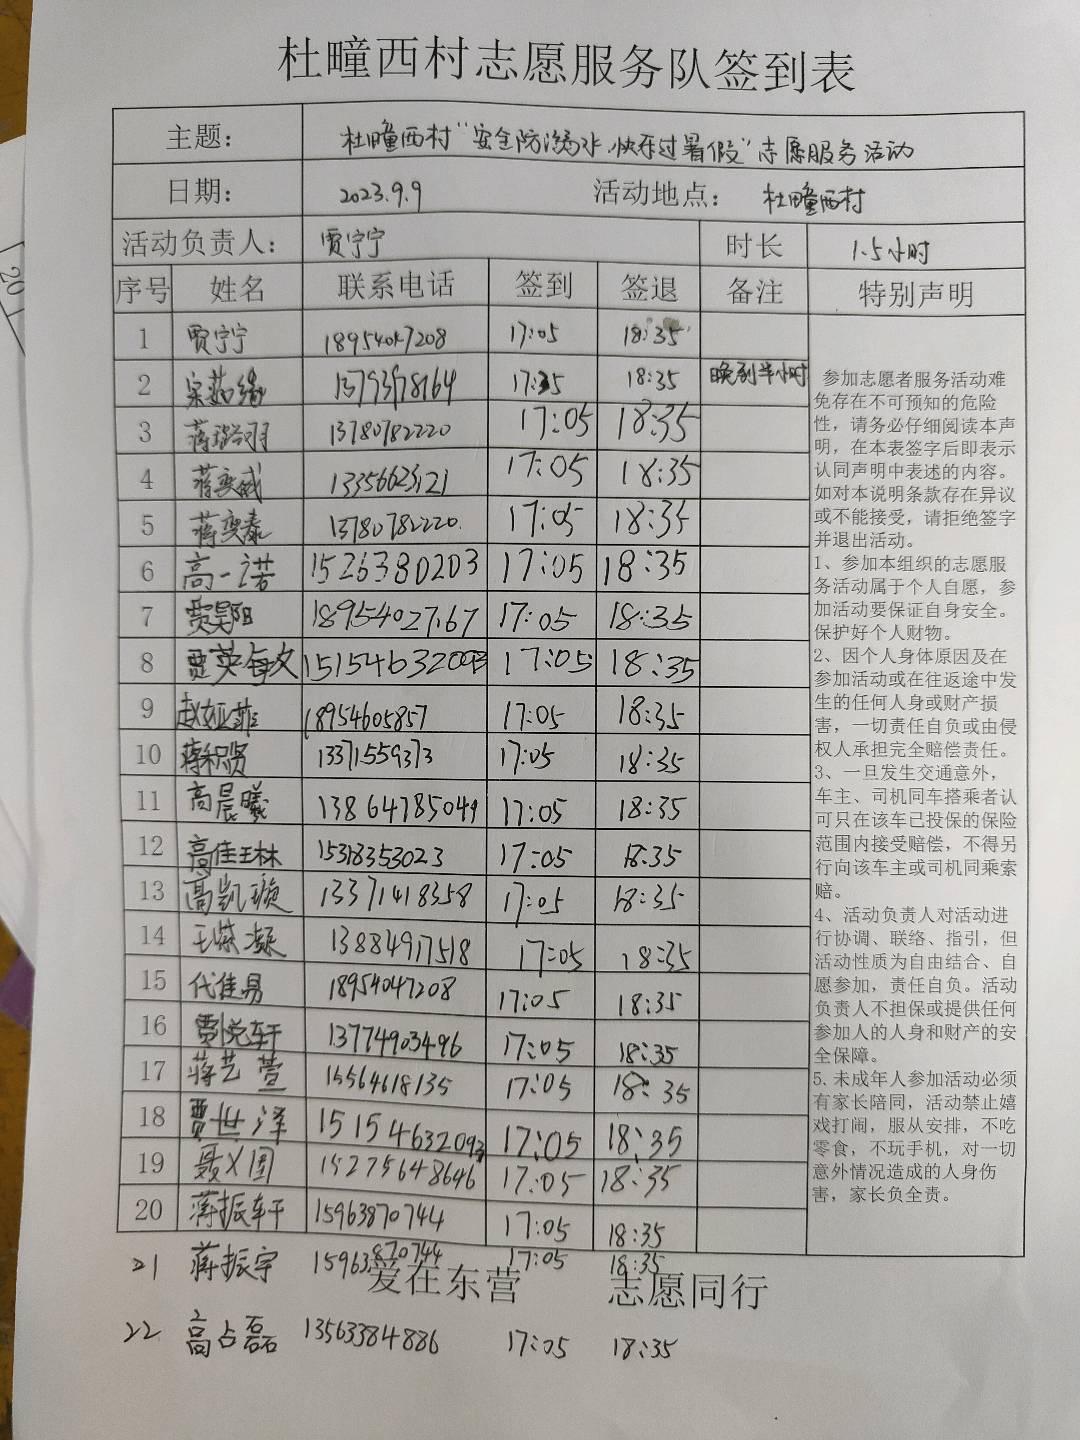 杜疃西村志愿服务队签到表
主题： 杜疃西村“安全防溺水，快乐过暑假”志愿服务活动
日期： 2023.9.9 活动地点： 杜疃西村
活动负责人： 贾宁宁 时长 1.5小时
序号 姓名 联系电话 签到 签退 备注 特别声明
1 贾宁宁 18954047208 17:05 18:35
2 宗茹缘 13793978164 17:35 18:35 晚到半小时
3 蒋 羽 13780782220 17:05 18:35
4 蒋奕威 13356623121 17:05 18:35
5 蒋奕泰 13780782220 17:05 18:35
6 高一诺 15263380203 17:05 18:35
7 贾昊阳 18954027167 17:05 18:35
8 贾英 17:05 18:35
9 赵娅菲 18954605857 17:05 18:35
10 蒋积贤 13371559373 17:05 18:35
11 高晨曦 13864785049 17:05 18:35
12 高佳琳 15318353023 17:05 18:35
13 高凯璇 13371418358 17:05 18:35
14 王紫凝 13884917518 17:05 18:35
15 代佳易 18954047208 17:05 18:35
16 贾悦轩 13774903496 17:05 18:35
17 蒋艺萱 15564618135 17:05 18:35
18 贾世洋 15154632093 17:05 18:35
19 聂义国 15275648646 17:05 18:35
20 蒋振轩 15963870744 17:05 18:35
21 蒋振宇 15963870744 17:05 18:35
爱在东营 志愿同行
22 高占磊 13563384886 17:05 18:35
参加志愿者服务活动难
免存在不可预知的危险
性，请务必仔细阅读本声
明，在本表签字后即表示
认同声明中表述的内容。
如对本说明条款存在异议
或不能接受，请拒绝签字
并退出活动。
1、参加本组织的志愿服
务活动属于个人自愿，参
加活动要保证自身安全。
保护好个人财物。
2、因个人身体原因及在
参加活动或在往返途中发
生的任何人身或财产损
害，一切责任自负或由侵
权人承担完全赔偿责任。
3、一旦发生交通意外，
车主、司机同车搭乘者认
可只在该车已投保的保险
范围内接受赔偿，不得另
行向该车主或司机同乘索
赔。
4、活动负责人对活动进
行协调、联络、指引，但
活动性质为自由结合、自
愿参加，责任自负。活动
负责人不担保或提供任何
参加人的人身和财产的安
全保障。
5.未成年人参加活动必须
有家长陪同，活动禁止嬉
戏打闹，服从安排，不吃
零食，不玩手机，对一切
意外情况造成的人身伤
害，家长负全责。
20